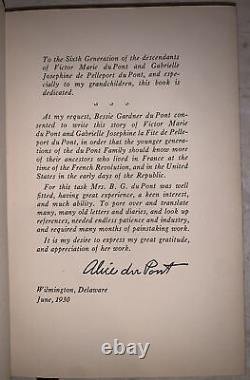 To the Sixth Generation of the descendants
of Victor Marie du Pont and Gabrielle
Josephine de Pelleport du Pont, and espe-
cially to my grandchildren, this book is
dedicated.
At my request, Bessie Gardner du Pont con-
sented to write this story of Victor Marie
du Pont and Gabrielle Josephine la Fite de Pelle-
port du Pont, in order that the younger genera-
tions of the du Pont Family should know more
of their ancestors who lived in France at the
time of the French Revolution, and in the United
States in the early days of the Republic.
For this task Mrs. B. G. du Pont was well
fitted, having great experience, a keen interest,
and much ability. To pore over and translate
many, many old letters and diaries, and look up
references, needed endless patience and industry,
and required many months of painstaking work.
It is my desire to express my great gratitude,
and appreciation of her work.
Alice du Pont
Wilmington, Delaware
June, 1930